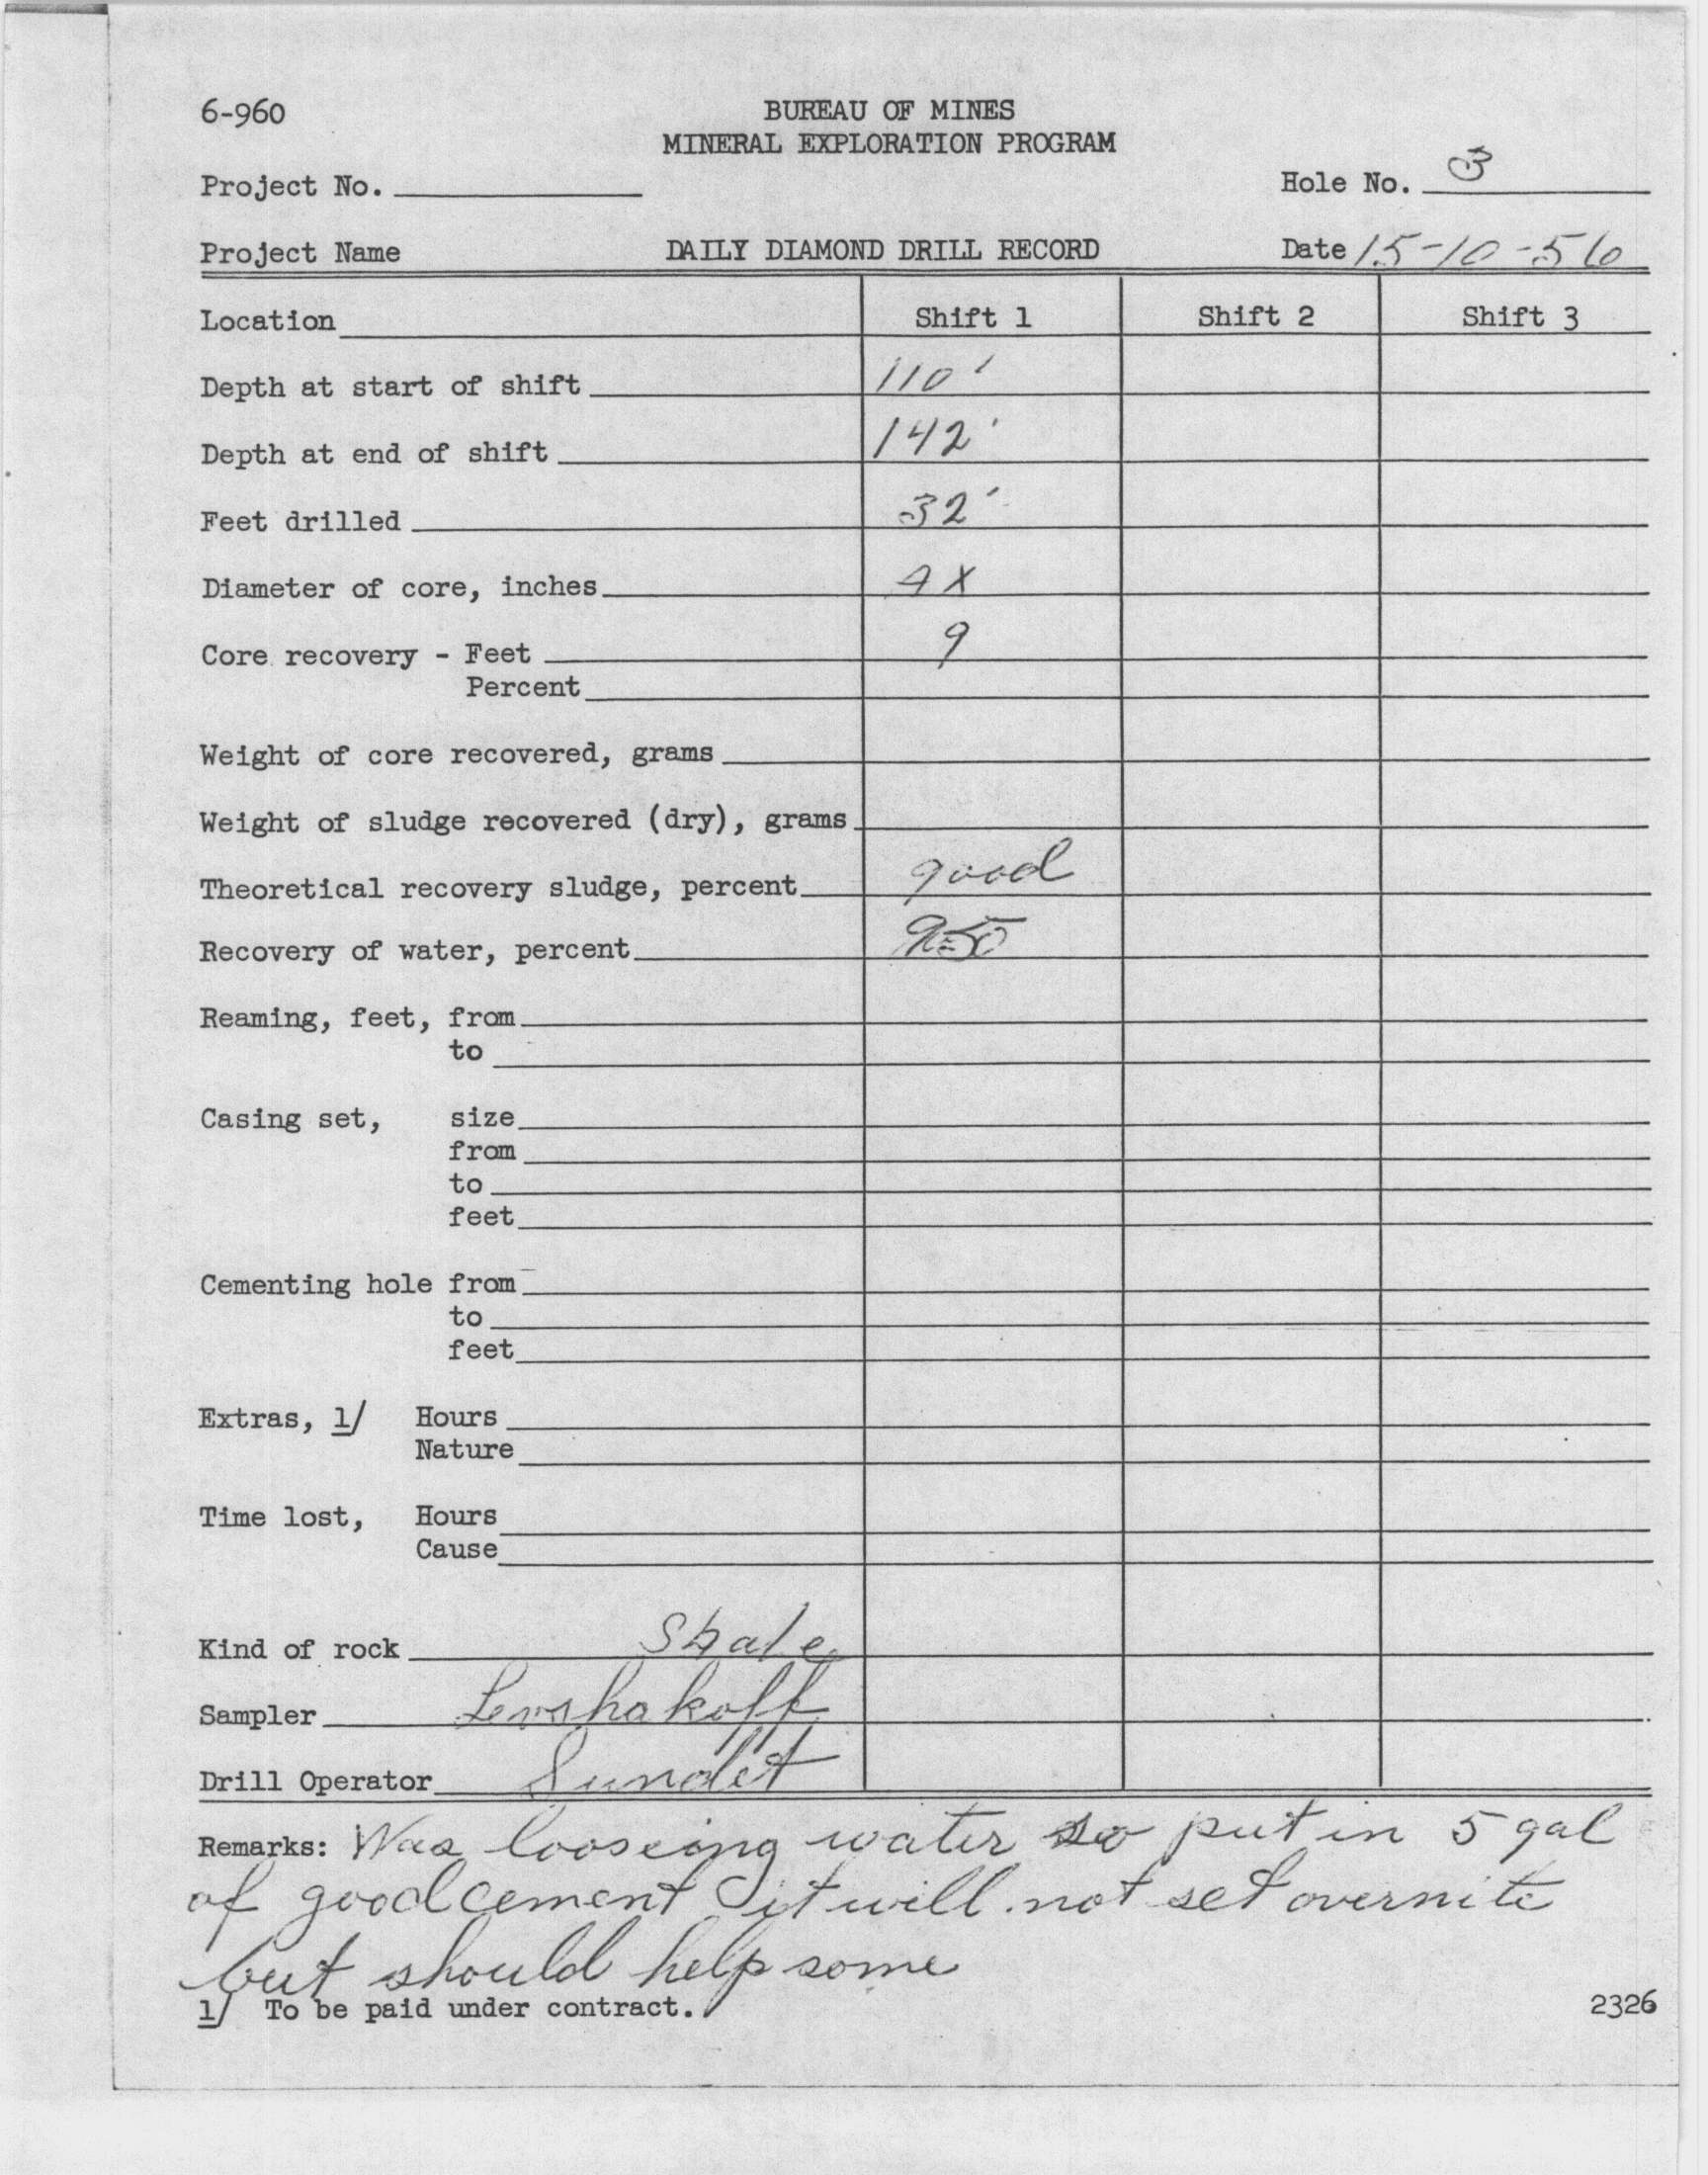 6-960
BUREAU OF MINES
MINERAL EXPLORATION PROGRAM
Project No. Hole No. 3
Project Name DAILY DIAMOND DRILL RECORD Date 15-10-56
Location Shift 1 Shift 2 Shift 3
Depth at start of shift 110'
Depth at end of shift 142'
Feet drilled 32'
Diameter of core, inches AX
Core recovery - Feet 9
Percent
Weight of core recovered, grams
Weight of sludge recovered (dry), grams
Theoretical recovery sludge, percent good
Recovery of water, percent
Reaming, feet, from
to
Casing set, size
from
to
feet
Cementing hole from
to
feet
Extras, 1/ Hours
Nature
Time lost, Hours
Cause
Kind of rock Shale
Sampler
Drill Operator
Remarks: Was looseing water so put in 5 gal
of good cement it will not set overnite
but should help some
1/ To be paid under contract.
2326